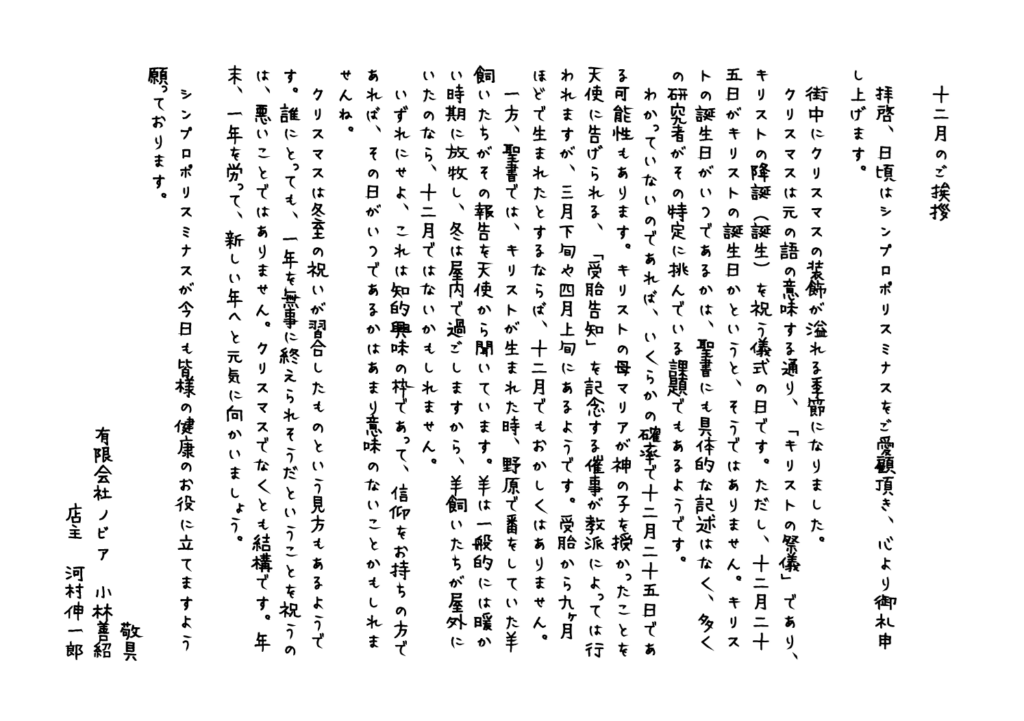 十二月のご挨拶
拝啓、日頃はシンプロポリスミナスをご愛顧頂き、心より御礼申
し上げます。
街中にクリスマスの装飾が溢れる季節になりました。
クリスマスは元の語の意味する通り、「キリストの祭儀」であり、
キリストの降誕(誕生)を祝う儀式の日です。ただし、十二月二十
五日がキリストの誕生日かというと、そうではありません。キリス
トの誕生日がいつであるかは、聖書にも具体的な記述はなく、多く
の研究者がその特定に挑んでいる課題でもあるようです。
わかっていないのであれば、いくらかの確率で十二月二十五日であ
る可能性もあります。キリストの母マリアが神の子を授かったことを
天使に告げられる、「受胎告知」を記念する催事が教派によっては行
われますが、三月下旬や四月上旬にあるようです。受胎から九ヶ月
ほどで生まれたとするならば、十二月でもおかしくはありません。
一方、聖書では、キリストが生まれた時、野原で番をしていた羊
飼いたちがその報告を天使から聞いています。羊は一般的には暖か
い時期に放牧し、冬は屋内で過ごしますから、羊飼いたちが屋外に
いたのなら、十二月ではないかもしれません。
いずれにせよ、これは知的興味の枠であって、信仰をお持ちの方で
あれば、その日がいつであるかはあまり意味のないことかもしれま
せんね。
クリスマスは冬至の祝いが習合したものという見方もあるようで
す。誰にとっても、一年を無事に終えられそうだということを祝うの
は、悪いことではありません。クリスマスでなくとも結構です。年
末、一年を労って、新しい年へと元気に向かいましょう。
シンプロポリスミナスが今日も皆様の健康のお役に立てますよう
願っております。
敬具
有限会社ノビア 小林善紹
店主 河村伸一郎